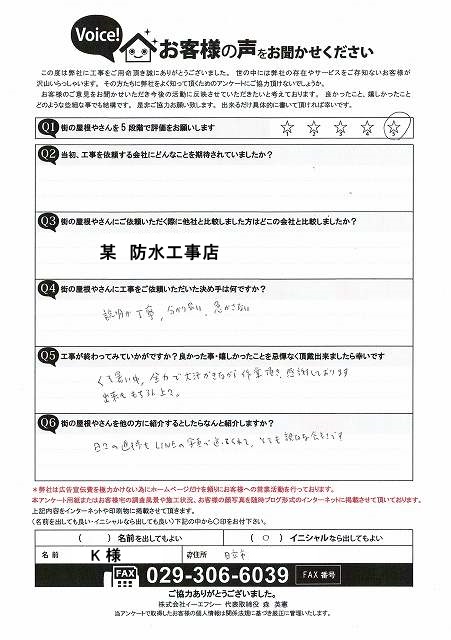 Voice!
お客様の声をお聞かせください
この度は弊社に工事をご用命頂き誠にありがとうございました。世の中には弊社の存在やサービスをご存知ないお客様が
沢山いらっしゃいます。その方たちに弊社をよく知って頂くためのアンケートにご協力頂けないでしょうか。
お客様のご意見をお聞かせいただき今後の活動に反映させていただきたいと考えております。良かったこと、嬉しかったこと
どのような些細な事でも結構です。是非ご協力お願い致します。出来るだけ具体的に書いて頂ければ幸いです。
Q1 街の屋根やさんを5段階で評価をお願いします
1 2 3 4 5
Q2 当初、工事を依頼する会社にどんなことを期待されていましたか?
Q3 街の屋根やさんにご依頼いただく際に他社と比較しました方はどこの会社と比較しましたか?
某 防水工事店
Q4 街の屋根やさんに工事をご依頼いただいた決め手は何ですか?
説明が丁寧,
Q5 工事が終わってみていかがですか?良かった事・嬉しかったことを忌憚なく頂戴出来ましたら幸いです
暑い中,全力で大汗かきながら作業頂き,感謝しております
出来も
Q6 街の屋根やさんを他の方に紹介するとしたらなんと紹介しますか?
日々の進捗もLINEの写真で送ってくれて,とても親切な会社です
*弊社は広告宣伝費を極力かけない為にホームページだけを頼りにお客様への営業活動を行っております。
本アンケート用紙またはお客様宅の調査風景や施工状況、お客様の顔写真を随時ブログ形式のインターネットに掲載させて頂いております。
上記内容をインターネットや印刷物に掲載させて頂きます。
(名前を出しても良い・イニシャルなら出しても良い)下記の中から〇印をお付け下さい。
( )名前を出してもよい (〇)イニシャルなら出してもよい
名前 K様 御住所
FAX 029-306-6039 FAX番号
ご協力ありがとうございました。
株式会社イーエフシー 代表取締役 森 英憲
当アンケートで取得したお客様の個人情報は関係法規に基づき厳正に管理いたします。